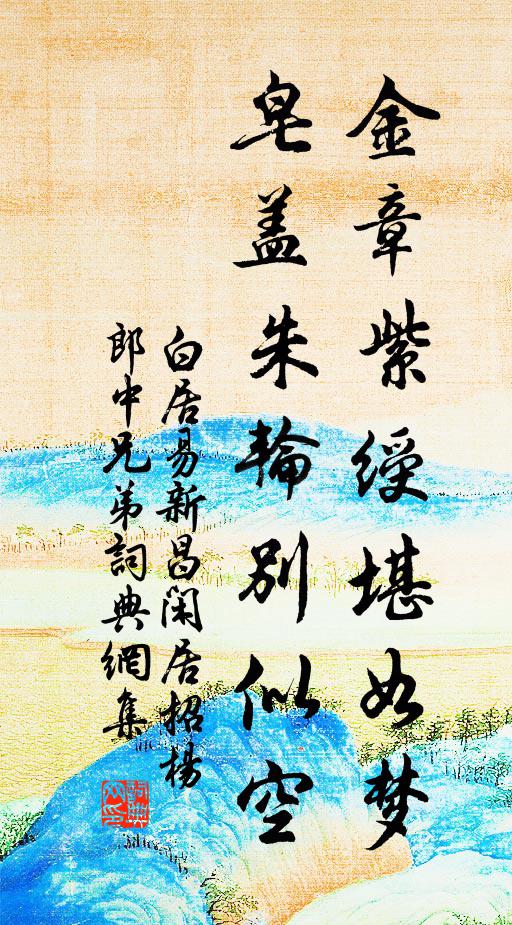 金章紫绶堪如梦
皂盖朱輪别似空
白居易新昌闲居招楊
郎中兄弟詞典網集